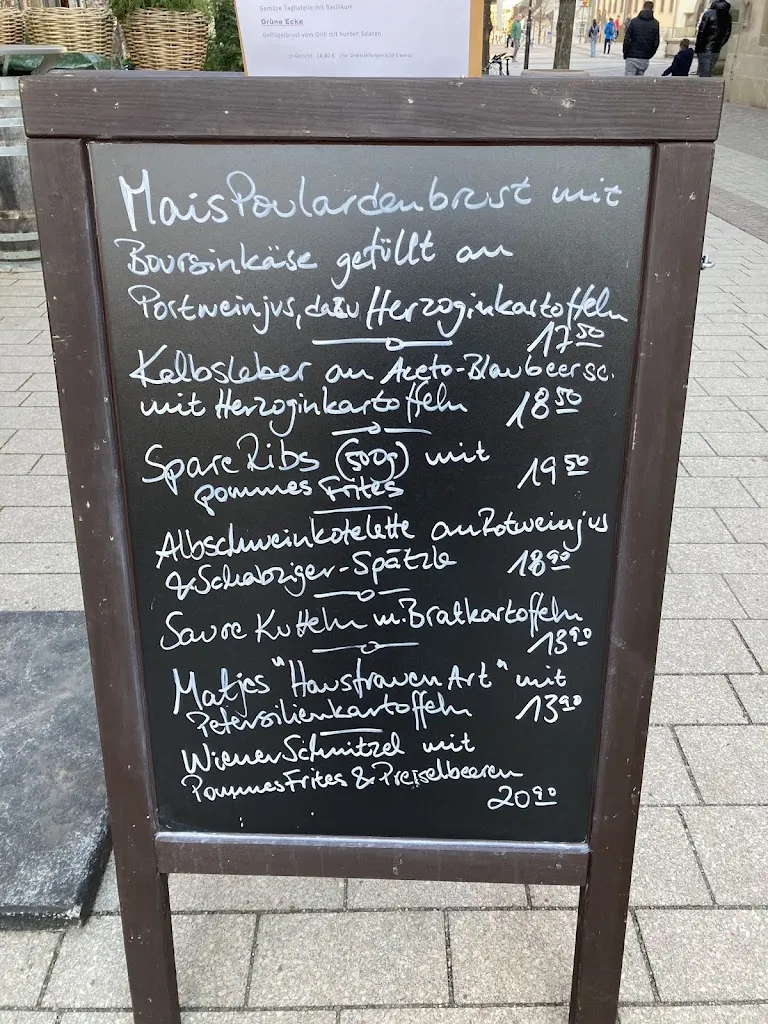 Gemüse Tagliatelle mit Basilikum
Grüne Ecke
Geflügelbrust vom Grill mit bunten Salaten
MaisPoulardenbrust mit
Boursinkäse gefüllt an
Portweinjus, dazu Herzoginkartoffeln
17 50
Kalbsleber an Aceto-Blaubeersc.
mit Herzoginkartoffeln 18 50
Spare Ribs (500g) mit
pommes Frites 19 50
Albschweinkotelette an Rotweinjus
& Schabziger-Spätzle 18 90
Saure Kutteln m. Bratkartoffeln
13 90
Matjes "Hausfrauen Art" mit
Petersilienkartoffeln 13 90
Wiener Schnitzel mit
Pommes Frites & Preiselbeeren
20 90